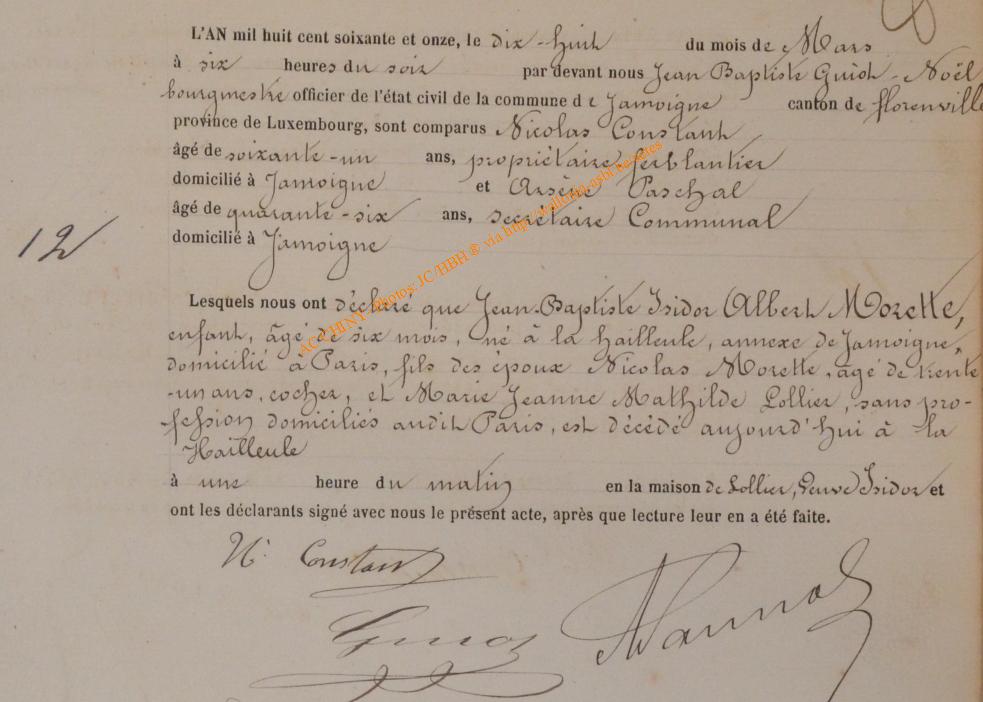 L'AN mil huit cent soixante et onze, le dix-huit du mois de Mars
à six heures du soir par devant nous Jean Baptiste Guiot-Noël
bourgmestre officier de l'état civil de la commune de Jamoigne canton de florenville
province de Luxembourg, sont comparus Nicolas Constant
âgé de soixante-un ans, propriétaire ferblantier
domicilié à Jamoigne et Arsène Paschal
âgé de quarante-six ans, secrétaire Communal
12
domicilié à Jamoigne
Lesquels nous ont déclaré que Jean-Baptiste Isidor Albert Morette,
enfant, âgé de six mois, né à la hailleule, annexe de Jamoigne,
domicilié à Paris, fils des époux Nicolas Morette, âgé de trente
-un ans, cocher, et Marie Jeanne Mathilde Lollier, sans pro-
fession domiciliés audit Paris, est décédé aujourd'hui à la
Hailleule
à une heure du matin en la maison de Lollier, Veuve Isidor et
ont les déclarants signé avec nous le présent acte, après que lecture leur en a été faite.
N. Constant